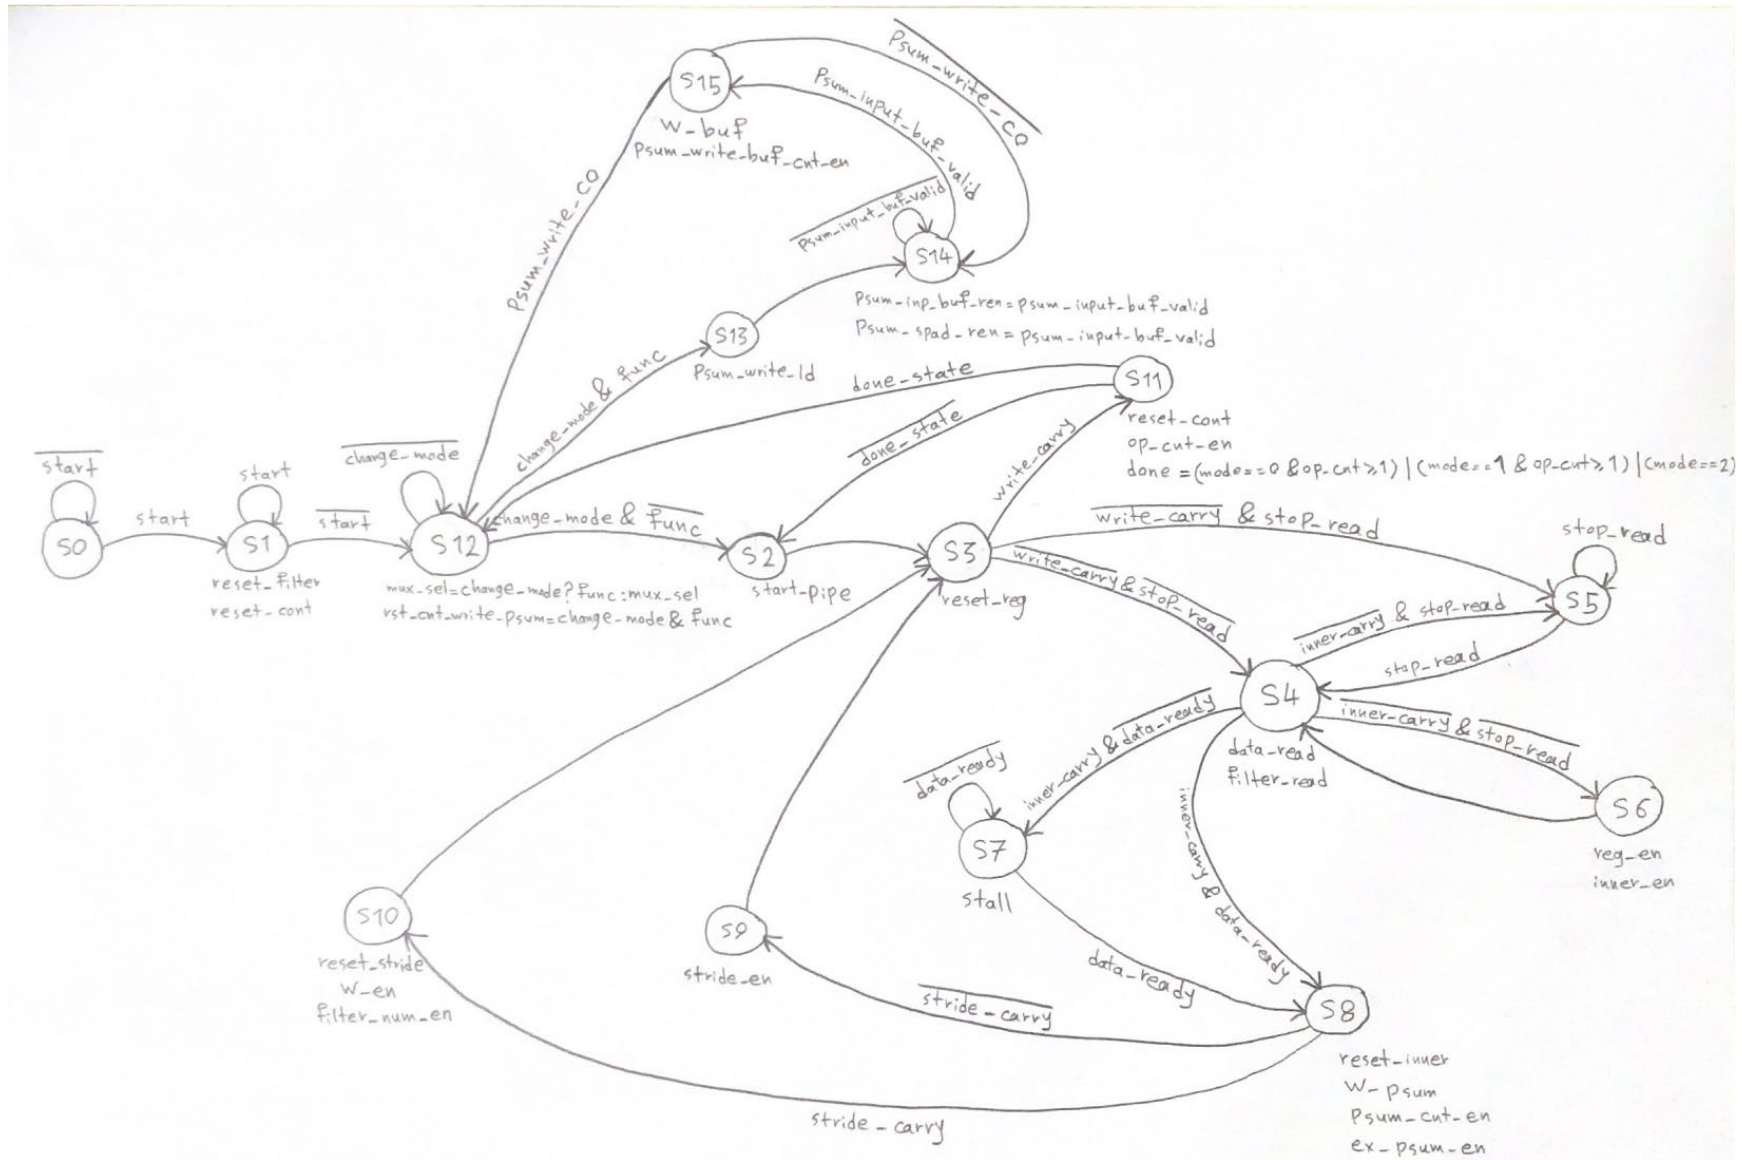 S15
W-buf
Psum_write-buf-cnt-en
Psum_write_co
Psum_input_buf_valid
Psum_write_co
Psum_input_buf_valid
S14
Psum_inp_buf_ren = psum_input_buf_valid
Psum_spad_ren = psum_input_buf_valid
S13
Psum_write_ld
change_mode & func
done_state
S11
reset_cont
op_cnt_en
done = (mode==0 & op_cnt≥1) | (mode==1 & op_cnt≥1) | (mode==2)
done_state
write_carry
start
S0
start
start
S1
reset_filter
reset_cont
start
change_mode
S12
mux_sel=change_mode?func:mux_sel
rst_cnt_write_psum=change_mode & func
change_mode & func
S2
start_pipe
S3
reset_reg
write_carry & stop_read
write_carry & stop_read
stop_read
S5
inner_carry & stop_read
stop_read
S4
data_read
filter_read
inner_carry & stop_read
S6
reg_en
inner_en
inner_carry & data_ready
data_ready
S7
stall
inner_carry & data_ready
data_ready
S10
reset_stride
W_en
filter_num_en
S9
stride_en
stride_carry
stride_carry
S8
reset_inner
W_psum
Psum_cnt_en
ex_psum_en